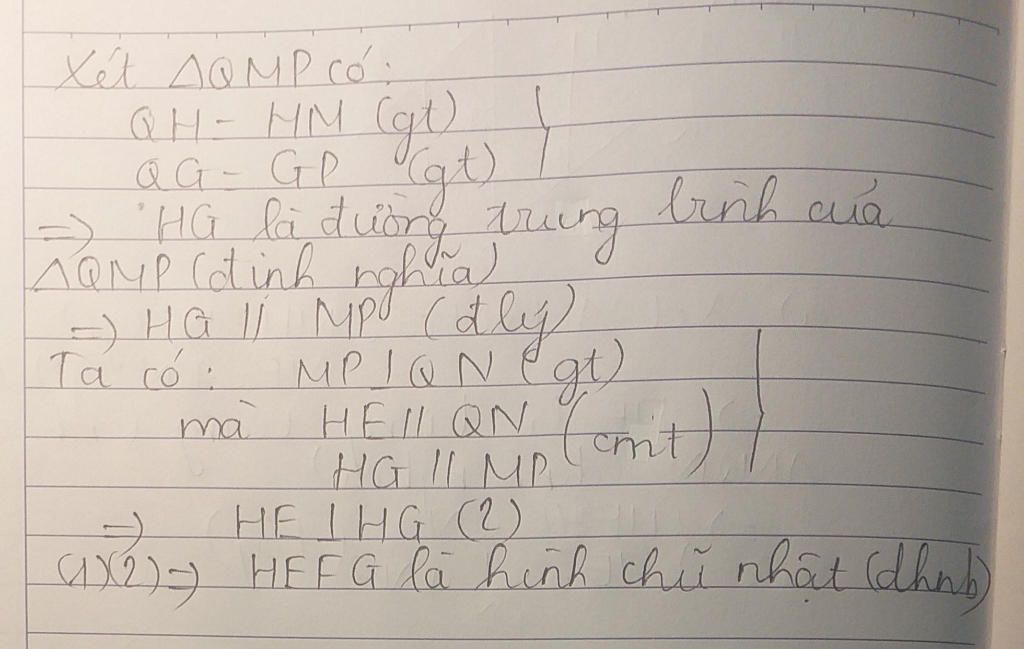 Xét △QMP có:
QH = HM (gt)
QG = GP (gt)
=> HG là đường trung bình của
△QMP (định nghĩa)
=> HG // MP (đlý)
Ta có: MP ⊥ QN (gt)
mà HE // QN
HG // MP (cmt)
=> HE ⊥ HG (2)
(1)(2) => HEFG là hình chữ nhật (dhnb)